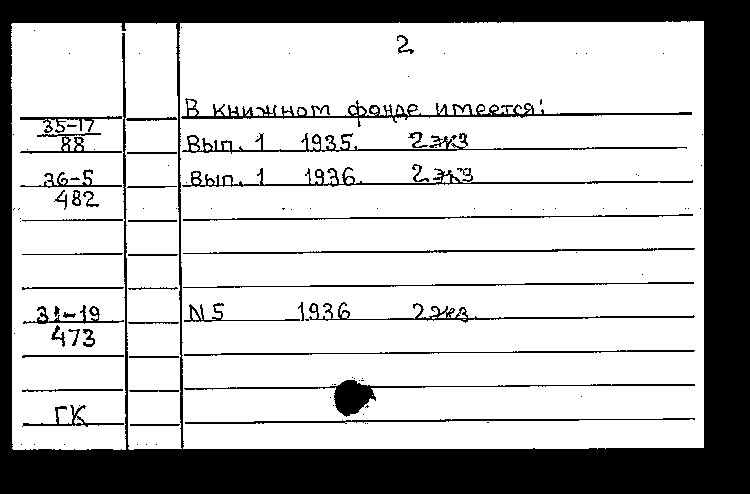 2
В книжном фонде имеется:
35-17 Вып. 1 1935. 2 экз
88
36-5 Вып. 1 1936. 2 экз
482
31-19 N 5 1936 2 экз.
473
ГК